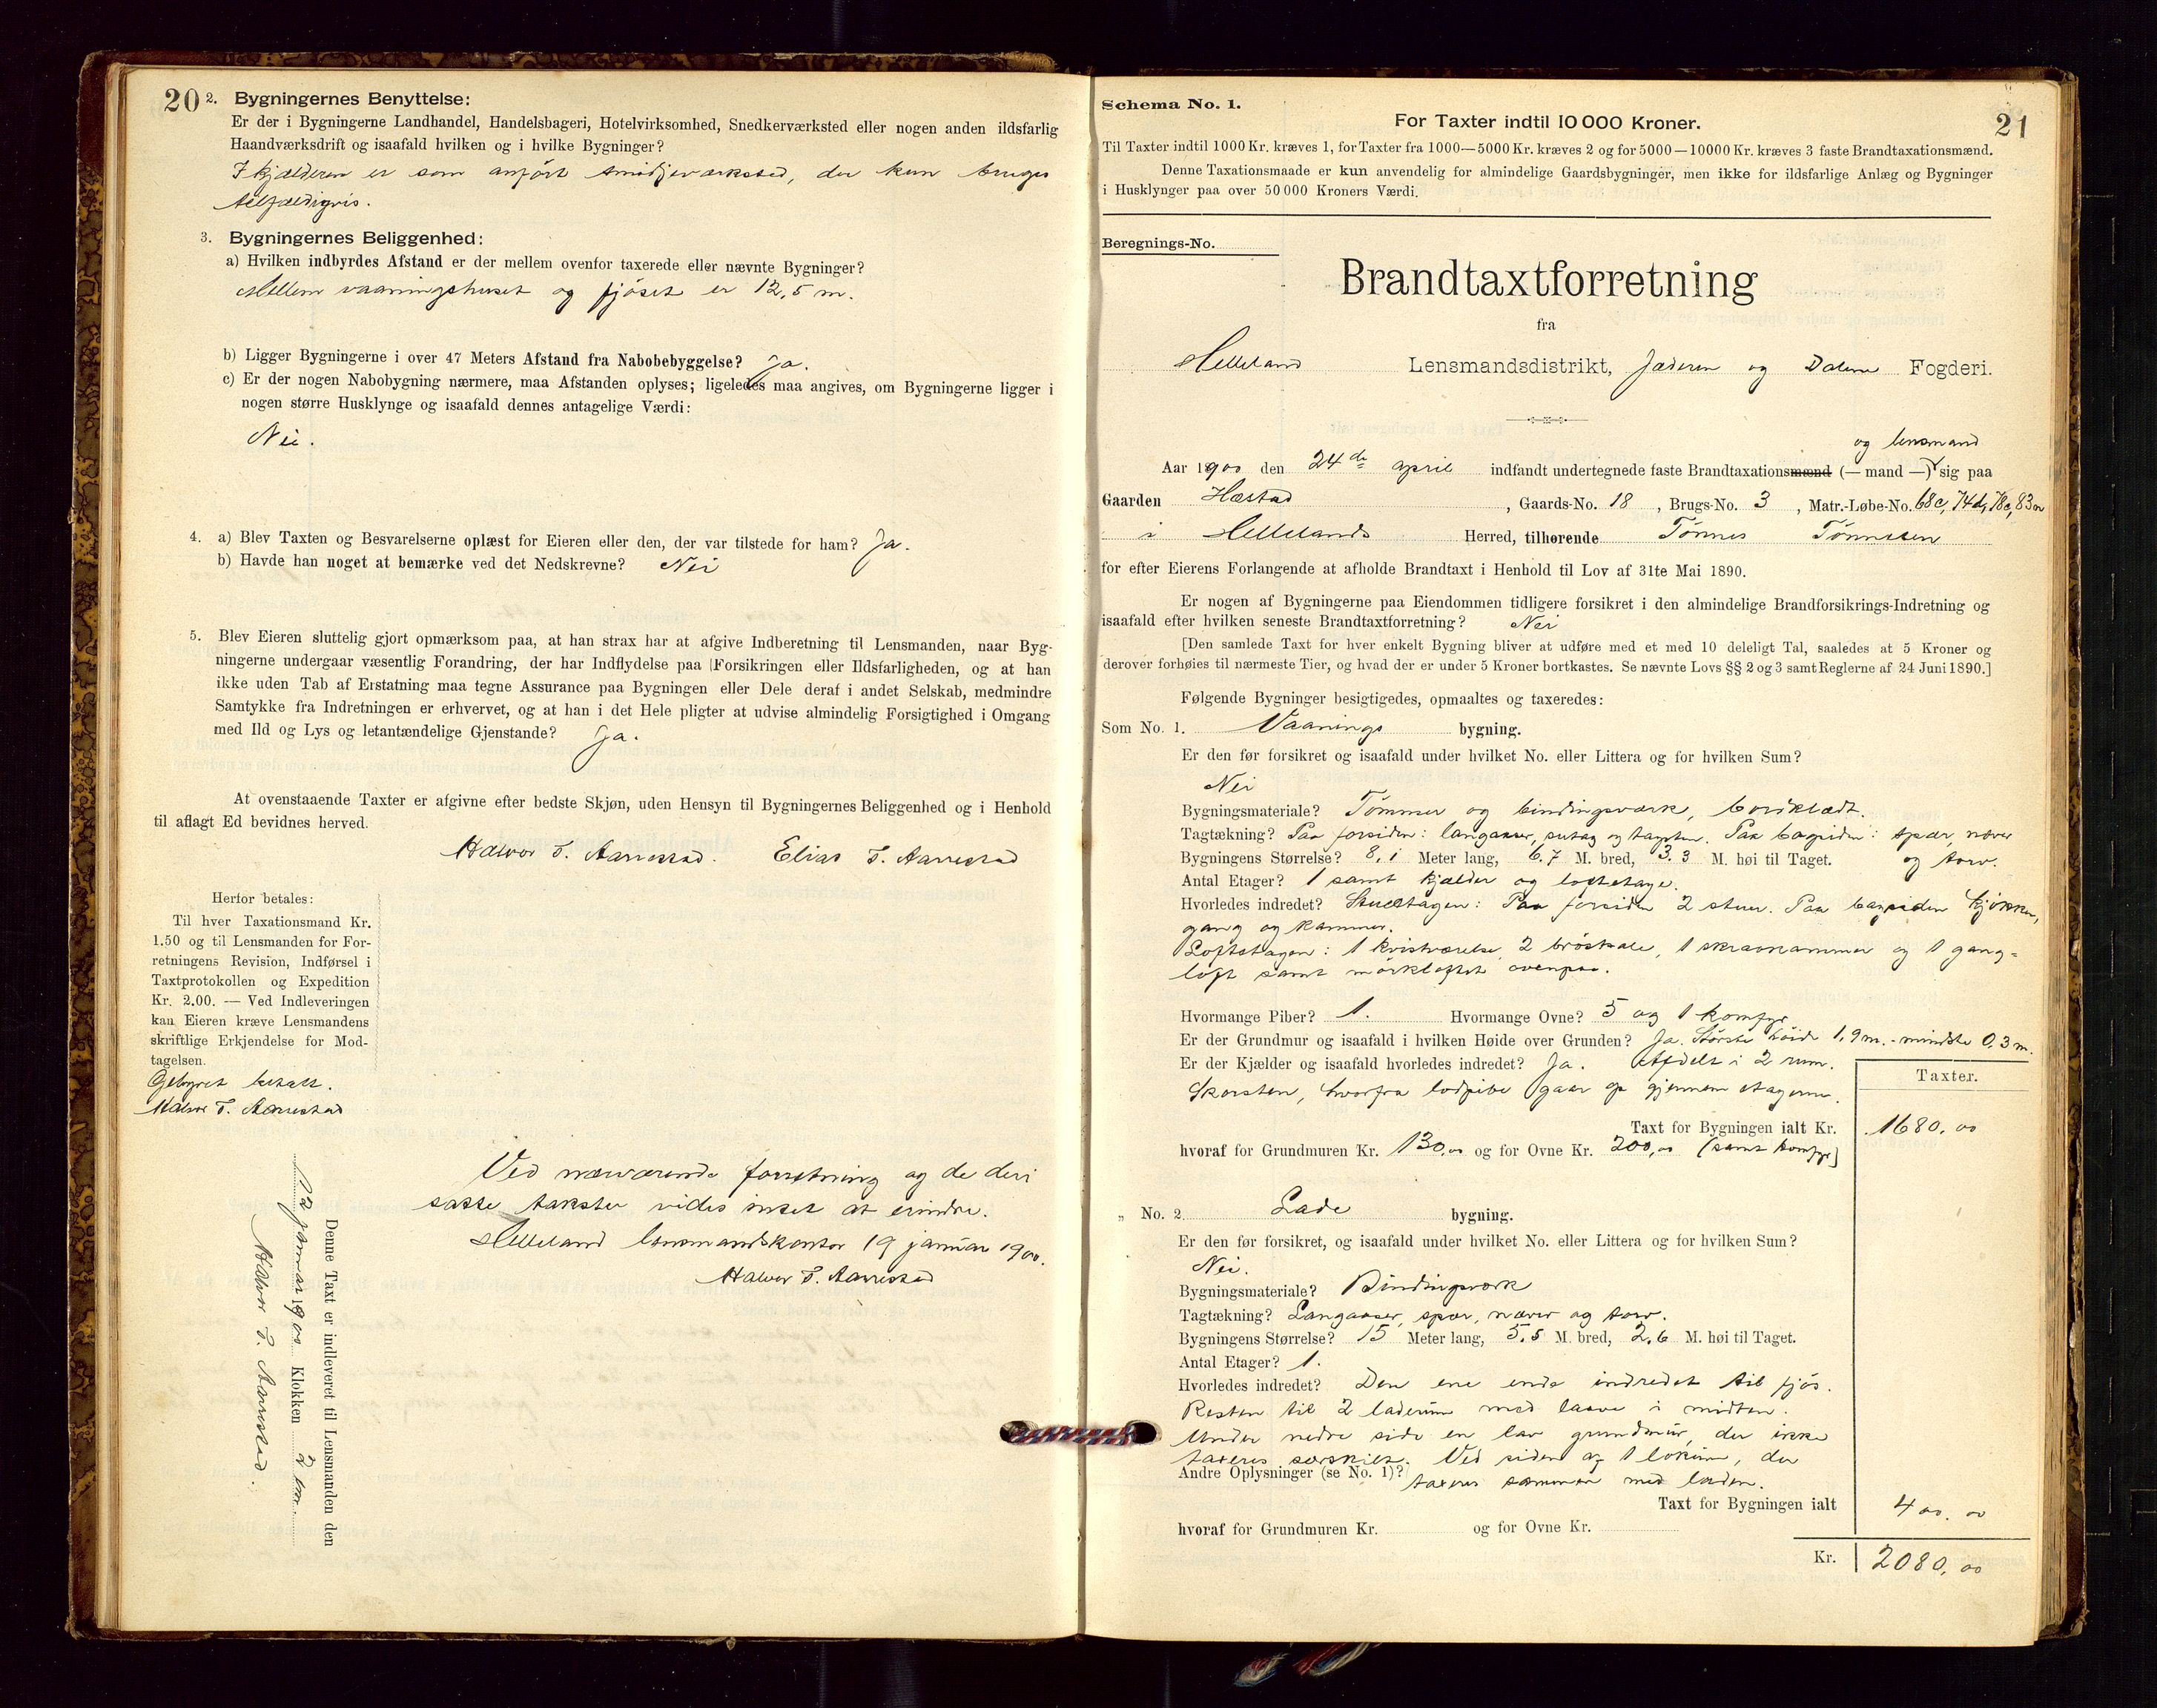 20
2. Bygningernes Benyttelse:
Er der i Bygningerne Landhandel, Handelsbageri, Hotelvirksomhed, Snedkerværksted eller nogen anden ildsfarlig
Haandværksdrift og isaafald hvilken og i hvilke Bygninger?
I kjælderen er som anført smidjeværksted, der kun bruges
tilfældigvis.
3. Bygningernes Beliggenhed:
a) Hvilken indbyrdes Afstand er der mellem ovenfor taxerede eller nævnte Bygninger?
Mellem vaaningshuset og fjöset er 12,5 m.
b) Ligger Bygningerne i over 47 Meters Afstand fra Nabobebyggelse? Ja.
c) Er der nogen Nabobygning nærmere, maa Afstanden oplyses; ligeledes maa angives, om Bygningerne ligger i
nogen større Husklynge og isaafald dennes antagelige Værdi:
Nei.
4. a) Blev Taxten og Besvarelserne oplæst for Eieren eller den, der var tilstede for ham? Ja.
b) Havde han noget at bemærke ved det Nedskrevne? Nei
5. Blev Eieren sluttelig gjort opmærksom paa, at han strax har at afgive Indberetning til Lensmanden, naar Byg-
ningerne undergaar væsentlig Forandring, der har Indflydelse paa Forsikringen eller Ildsfarligheden, og at han
ikke uden Tab af Erstatning maa tegne Assurance paa Bygningen eller Dele deraf i andet Selskab, medmindre
Samtykke fra Indretningen er erhvervet, og at han i det Hele pligter at udvise almindelig Forsigtighed i Omgang
med Ild og Lys og letantændelige Gjenstande? Ja.
At ovenstaaende Taxter er afgivne efter bedste Skjøn, uden Hensyn til Bygningernes Beliggenhed og i Henhold
til aflagt Ed bevidnes herved.
Halvor T. Aarrestad. Elias T. Aarrestad
Herfor betales:
Til hver Taxationsmand Kr.
1.50 og til Lensmanden for For-
retningens Revision, Indførsel i
Taxtprotokollen og Expedition
Kr. 2.00. — Ved Indleveringen
kan Eieren kræve Lensmandens
skriftlige Erkjendelse for Mod-
tagelsen.
Gebyret betalt.
Halvor T. Aarrestad
Ved nærværende forretning og de deri
satte takster vides intet at erindre.
Helleland lensmandskontor 19 januar 1900.
Halvor T. Aarrestad
Denne Taxt er indleveret til Lensmanden den
12 januar 1900 Klokken 2 em.
Halvor T. Aarrestad.
21
Schema No. 1.
For Taxter indtil 10 000 Kroner.
Til Taxter indtil 1000 Kr. kræves 1, for Taxter fra 1000—5000 Kr. kræves 2 og for 5000—10000 Kr. kræves 3 faste Brandtaxationsmænd.
Denne Taxationsmaade er kun anvendelig for almindelige Gaardsbygninger, men ikke for ildsfarlige Anlæg og Bygninger
i Husklynger paa over 50 000 Kroners Værdi.
Beregnings-No.
Brandtaxtforretning
fra
Helleland Lensmandsdistrikt, Jæderen og Dalene Fogderi.
og lensmand
Aar 1900 den 24de april indfandt undertegnede faste Brandtaxationsmænd (— mand —) sig paa
Gaarden Hæstad, Gaards-No. 18, Brugs-No. 3, Matr.-Løbe-No. 68c, 74d, 78c, 83a
i Hellelands Herred, tilhørende Tönnes Tönnesen
for efter Eierens Forlangende at afholde Brandtaxt i Henhold til Lov af 31te Mai 1890.
Er nogen af Bygningerne paa Eiendommen tidligere forsikret i den almindelige Brandforsikrings-Indretning og
isaafald efter hvilken seneste Brandtaxtforretning? Nei
[Den samlede Taxt for hver enkelt Bygning bliver at udføre med et med 10 deleligt Tal, saaledes at 5 Kroner og
derover forhøies til nærmeste Tier, og hvad der er under 5 Kroner bortkastes. Se nævnte Lovs §§ 2 og 3 samt Reglerne af 24 Juni 1890.]
Følgende Bygninger besigtigedes, opmaaltes og taxeredes:
Som No. 1. Vaanings bygning.
Er den før forsikret og isaafald under hvilket No. eller Littera og for hvilken Sum?
Nei
Bygningsmateriale? Tömmer og bindingsværk, bordklædt.
Tagtækning? Paa forsiden: langaaser, sutag og tagsten. Paa bagsiden: spær, næver
Bygningens Størrelse? 8,1 Meter lang, 6,7 M. bred, 3.3 M. høi til Taget. og torv.
Antal Etager? 1 samt kjælder og loftetage.
Hvorledes indredet? Stuetagen: Paa forsiden 2 stuer. Paa bagsiden kjökken,
gang og kammer.
Loftetagen: 1 kvistværelse, 2 bröstsale, 1 skraakammer og 1 gang-
loft samt mörkloftet ovenpaa.
Hvormange Piber? 1. Hvormange Ovne? 5 og 1 komfyr
Er der Grundmur og isaafald i hvilken Høide over Grunden? Ja. Störste höide 1,9 m. - mindste 0,3 m.
Er der Kjælder og isaafald hvorledes indredet? Ja. Afdelt i 2 rum.
Skorsten, hvorfra lodpibe gaar op gjennem etagerne.
Taxter.
Taxt for Bygningen ialt Kr. 1680,00
hvoraf for Grundmuren Kr. 130,00 og for Ovne Kr. 200,00 (samt komfyr)
" No. 2. Lade bygning.
Er den før forsikret, og isaafald under hvilket No. eller Littera og for hvilken Sum?
Nei.
Bygningsmateriale? Bindingsværk
Tagtækning? Langaaser, spær, næver og torv.
Bygningens Størrelse? 15 Meter lang, 5,5 M. bred, 2,6 M. høi til Taget.
Antal Etager? 1.
Hvorledes indredet? Den ene ende indredet til fjös.
Resten til 2 laderum med laave i midten.
Under nedre side en lav grundmur, der ikke
taxeres særskilt. Ved siden af 1 lokum, der
Andre Oplysninger (se No. 1)? taxeres sammen med laden.
Taxt for Bygningen ialt 400,00
hvoraf for Grundmuren Kr. og for Ovne Kr.
Kr. 2080,00